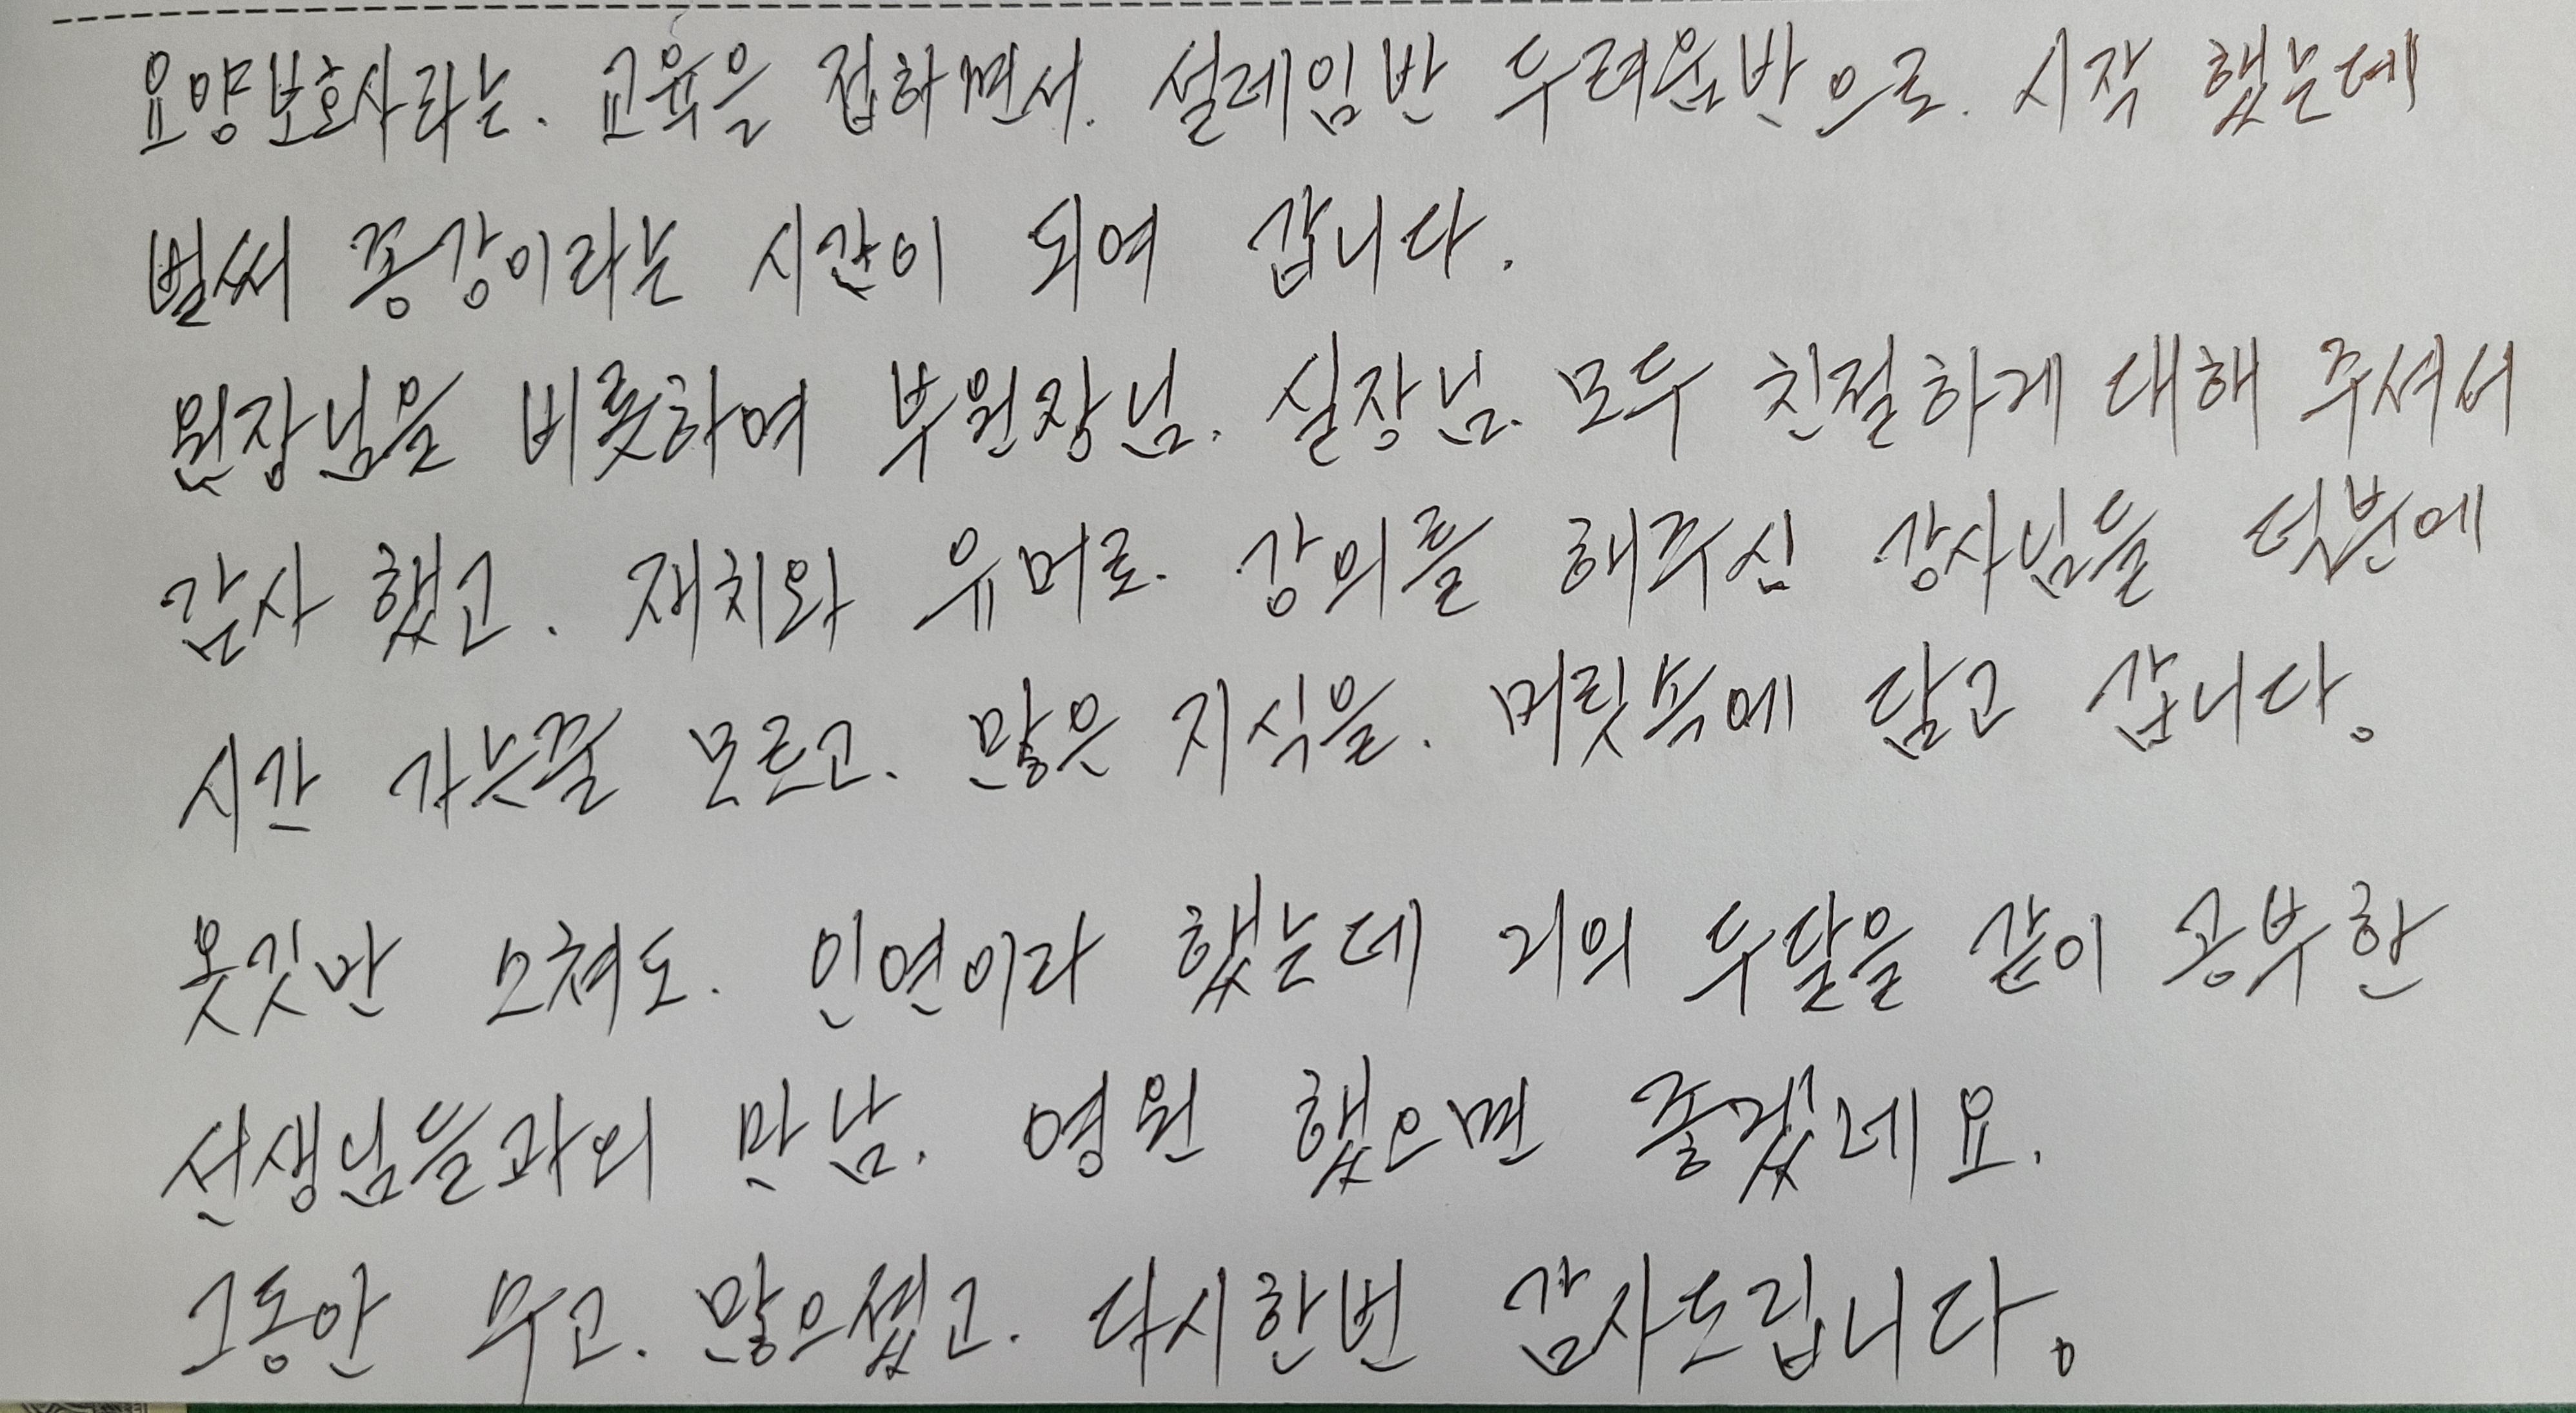 요양보호사라는. 교육을 접하면서. 설레임반 두려움반으로. 시작 했는데
벌써 종강이라는 시간이 되여 갑니다.
원장님을 비롯하여 부원장님. 실장님. 모두 친절하게 대해 주셔서
감사 했고. 재치와 유머로. 강의를 해주신 강사님들 덕분에
시간 가는줄 모르고. 많은 지식을. 머릿속에 담고 갑니다.
옷깃만 스쳐도. 인연이라 했는데 거의 두달을 같이 공부한
선생님들과의 만남. 영원 했으면 좋겠네요.
그동안 수고. 많으셨고. 다시한번 감사드립니다.